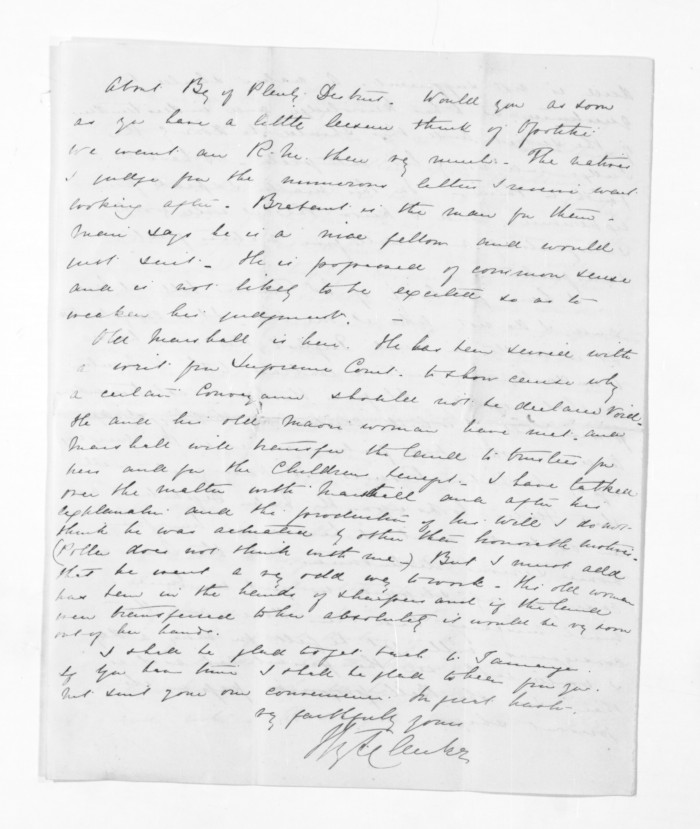 About Bay of Plenty District. Would you as soon
as you have a little leisure think of Opotiki
we want an R.M. there very much. The natives
I judge from the numerous letters I receive want
looking after. Brabant is the man for them.
Mair says he is a nice fellow and would
just suit. He is possessed of common sense
and is not likely to be excited so as to
weaken his judgment. –
Old Marshall is here. He has been served with
a writ from Supreme Court to show cause why
a certain Conveyance should not be declared Void.
He and his old Maori woman have met. and
Marshall will transfer the land to trustees for
hers and for the Childrens benefit. I have talked
over the matter with Marshall and after his
explanation and the production of his will I do not
think he was actuated by other than honorable motives.
( does not think with me.) But I must add
that he went a very odd way to work. His old woman
has been in the hands of sharpers and if the land
were transferred to her absolutely it would be very soon
out of her hands.
I shall be glad to get back to Tauranga.
If you have time I shall be glad to hear from you.
but suit your own convenience. In great haste.
very faithfully yours
H T Clarke